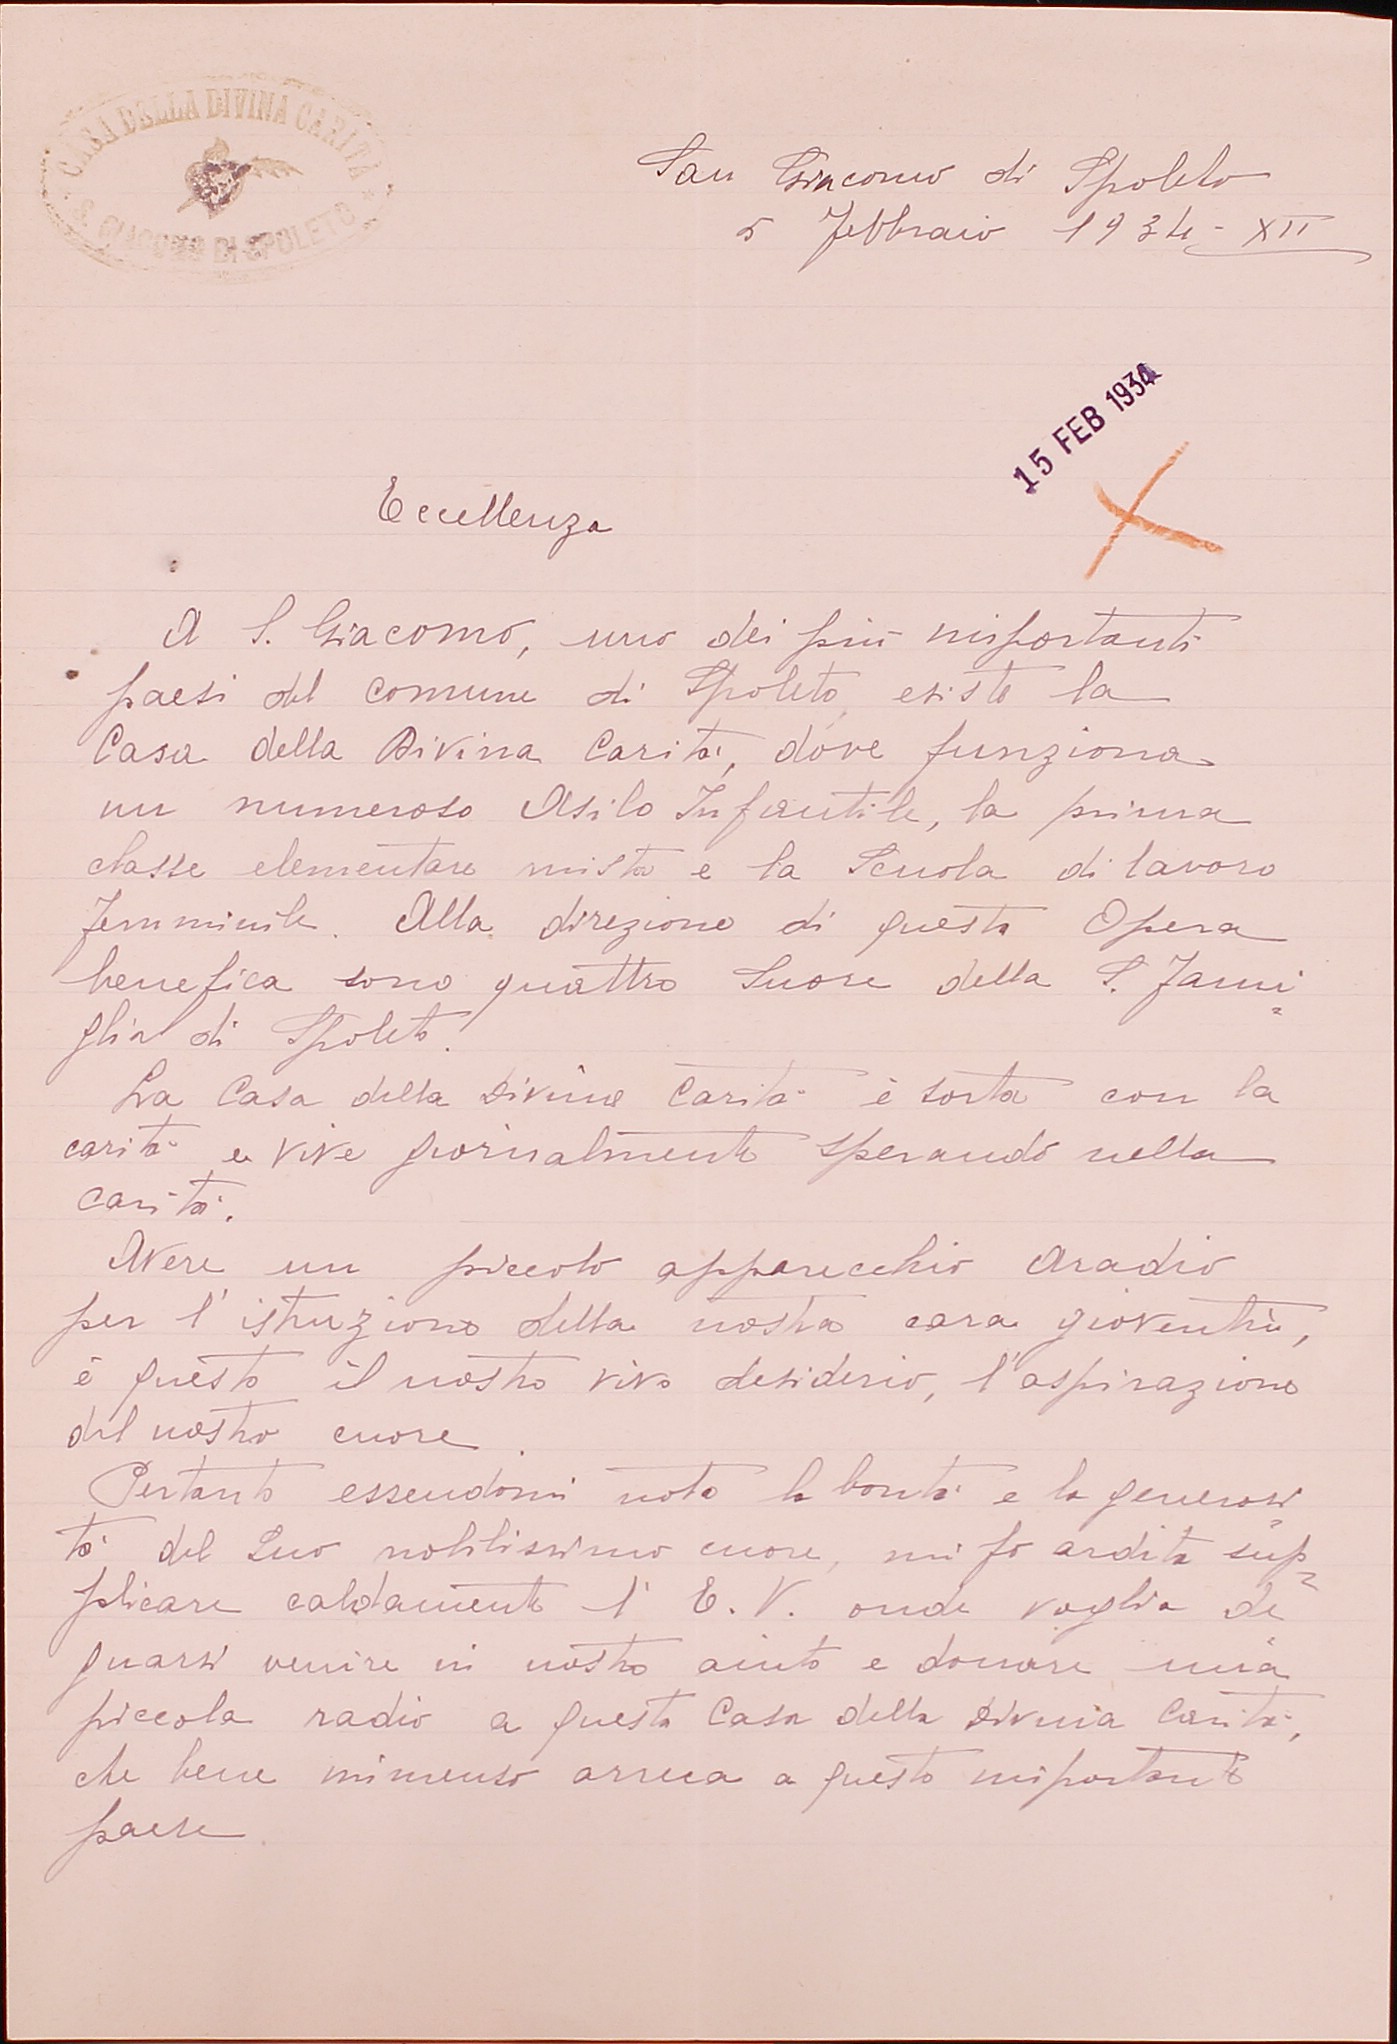 CASA DELLA DIVINA CARITÀ
S. GIACOMO DI SPOLETO
San Giacomo di Spoleto
5 Febbraio 1934 - XII
15 FEB 1934
Eccellenza
A S. Giacomo, uno dei più importanti
paesi del comune di Spoleto, esiste la
Casa della Divina Carità, dove funziona
un numeroso Asilo Infantile, la prima
classe elementare mista e la Scuola di lavoro
femminile. Alla direzione di questa Opera
benefica sono quattro Suore della S. Fami=
glia di Spoleto.
La Casa della Divina Carità è sorta con la
carità e vive giornalmente sperando nella
carità.
Avere un piccolo apparecchio aradio
per l'istruzione della nostra cara gioventù,
è questo il nostro vivo desiderio, l'aspirazione
del nostro cuore.
Pertanto essendomi nota la bontà e la generosi=
tà del Suo nobilissimo cuore, mi fo ardita sup=
plicare caldamente l'E.V. onde voglia de
gnarsi venire in nostro aiuto e donare una
piccola radio a questa Casa della Divina Carità,
che bene immenso arreca a questo importante
paese.